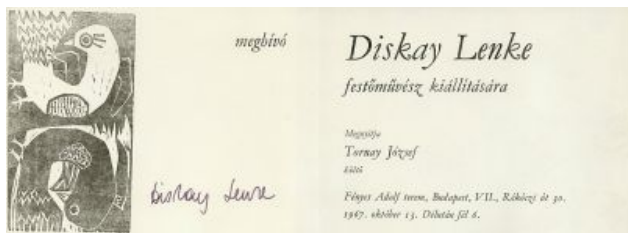 meghívó
Diskay Lenke
Diskay Lenke
festőművész kiállítására
Megnyitja
Tornay József
költő
Fényes Adolf terem, Budapest, VII., Rákóczi út 30.
1967. október 13. Délután fél 6.